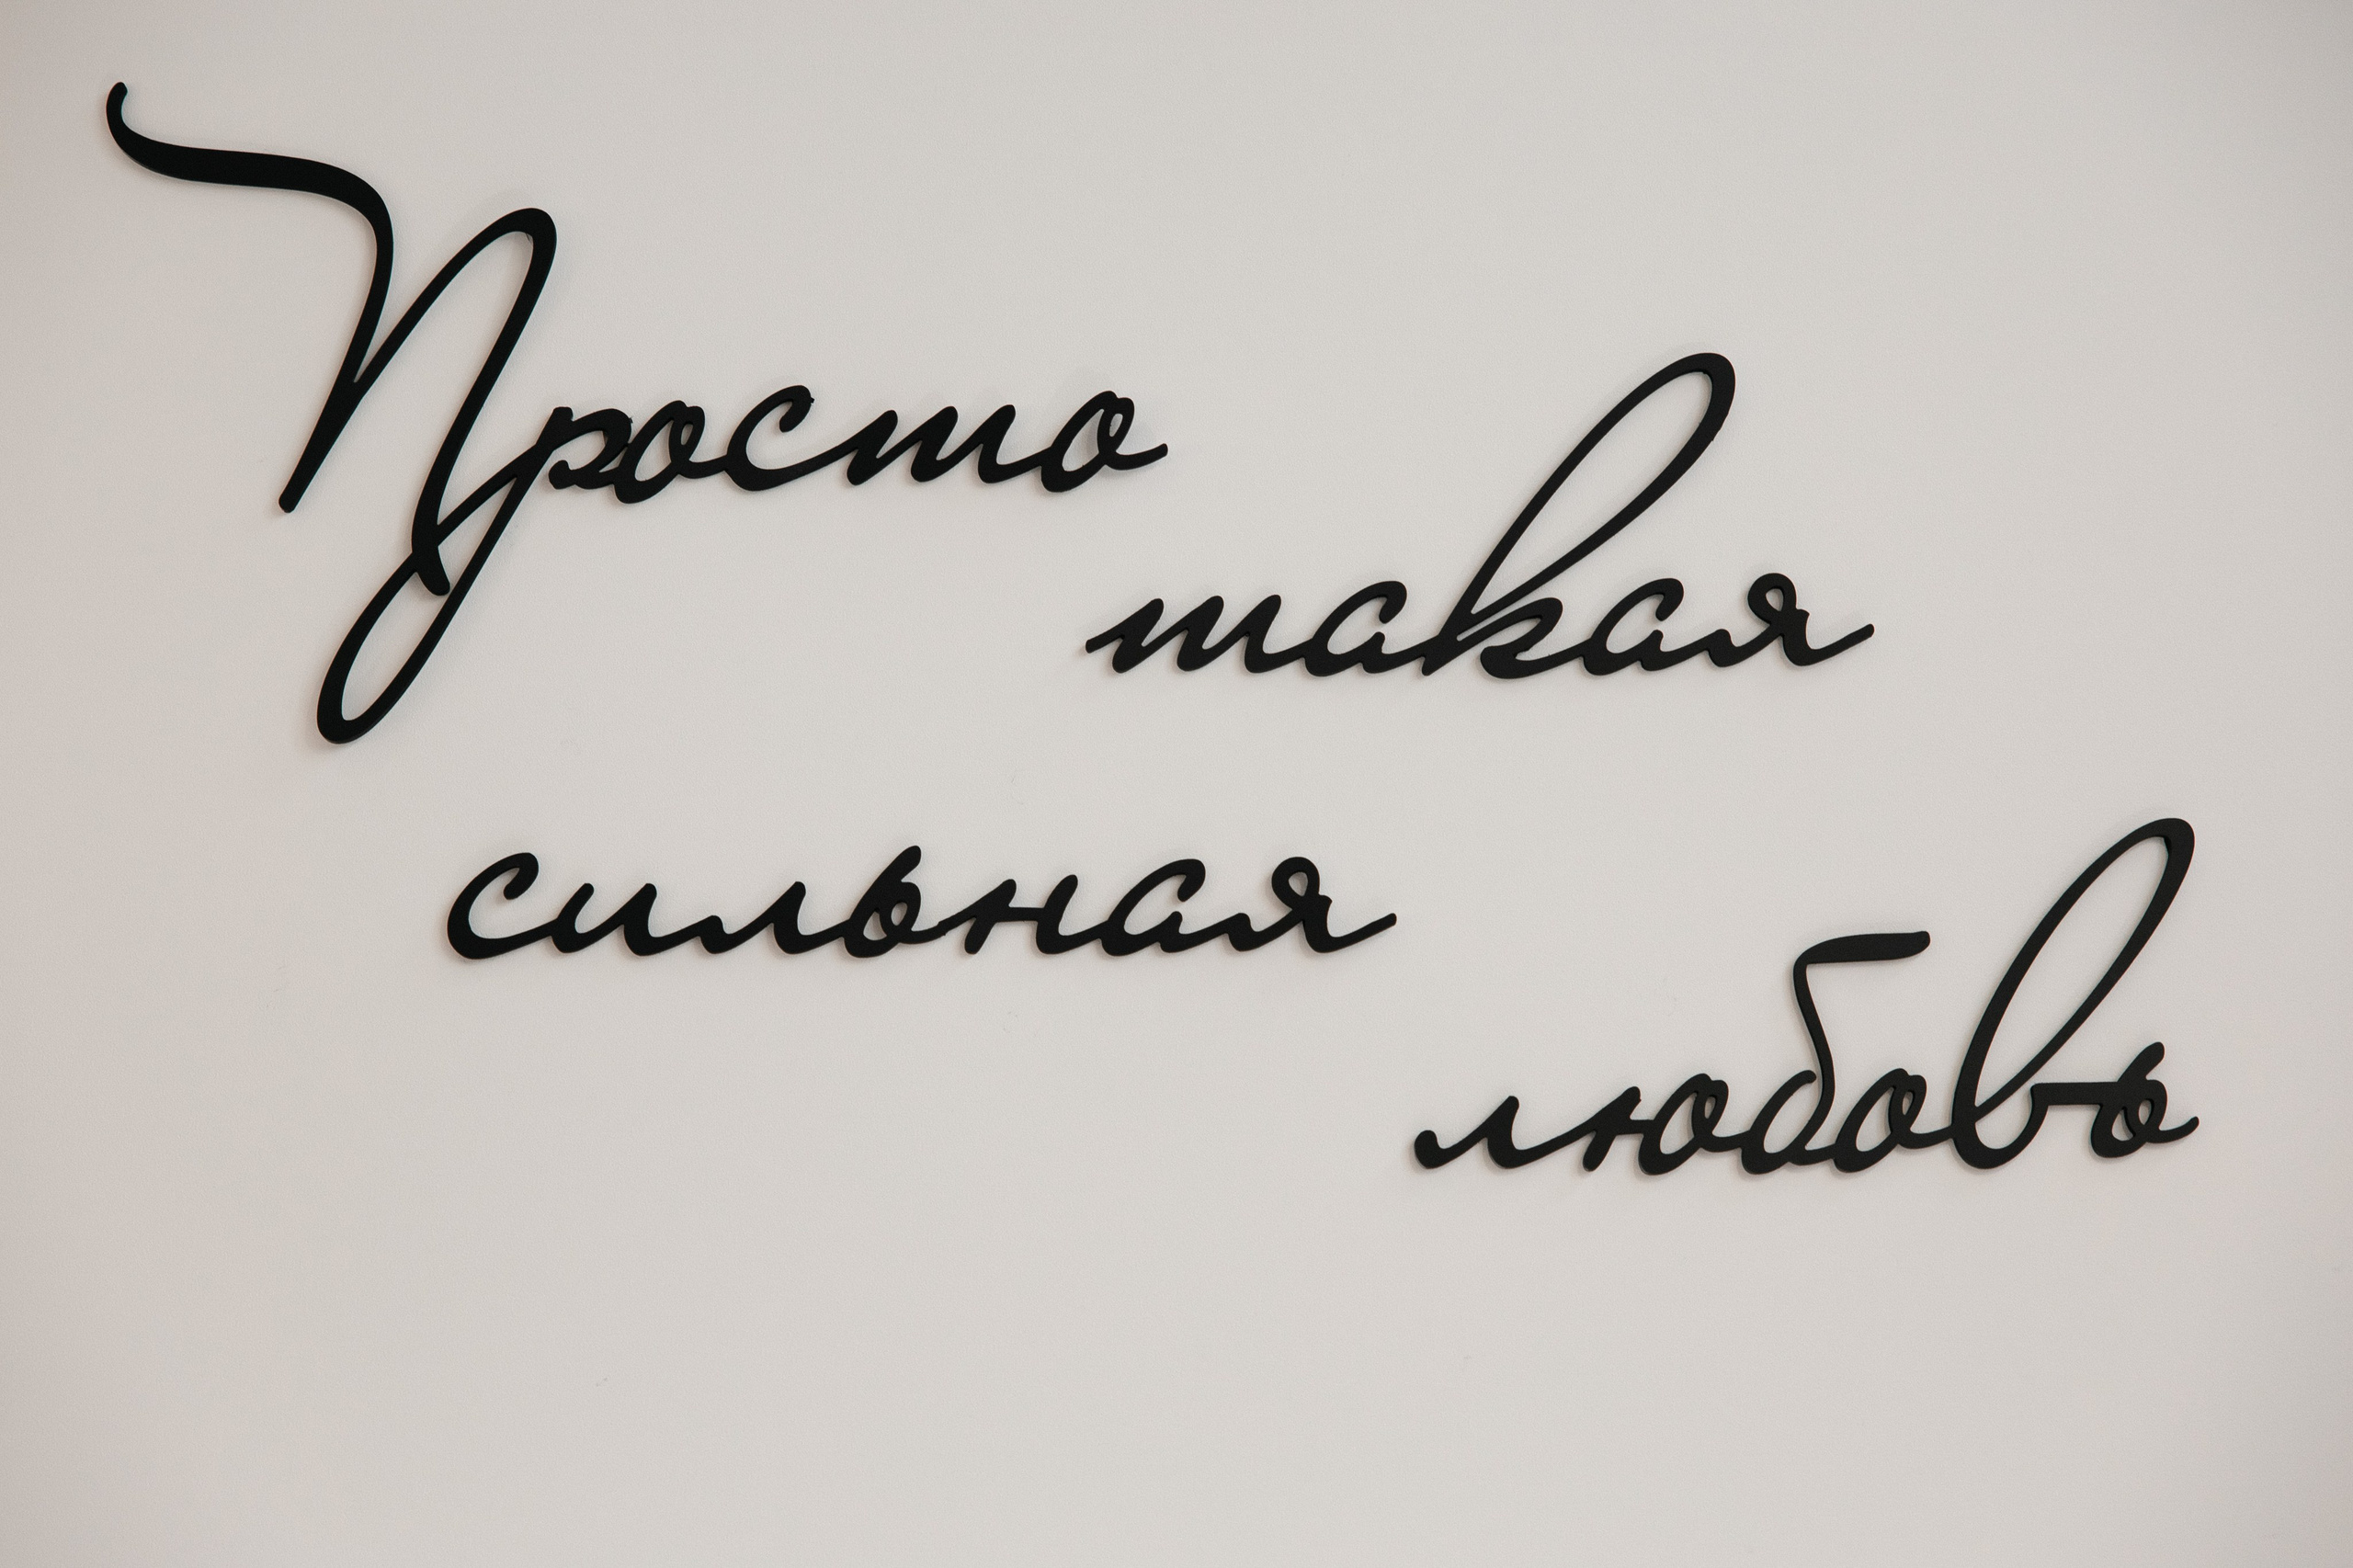 Просто
такая
сильная
любовь